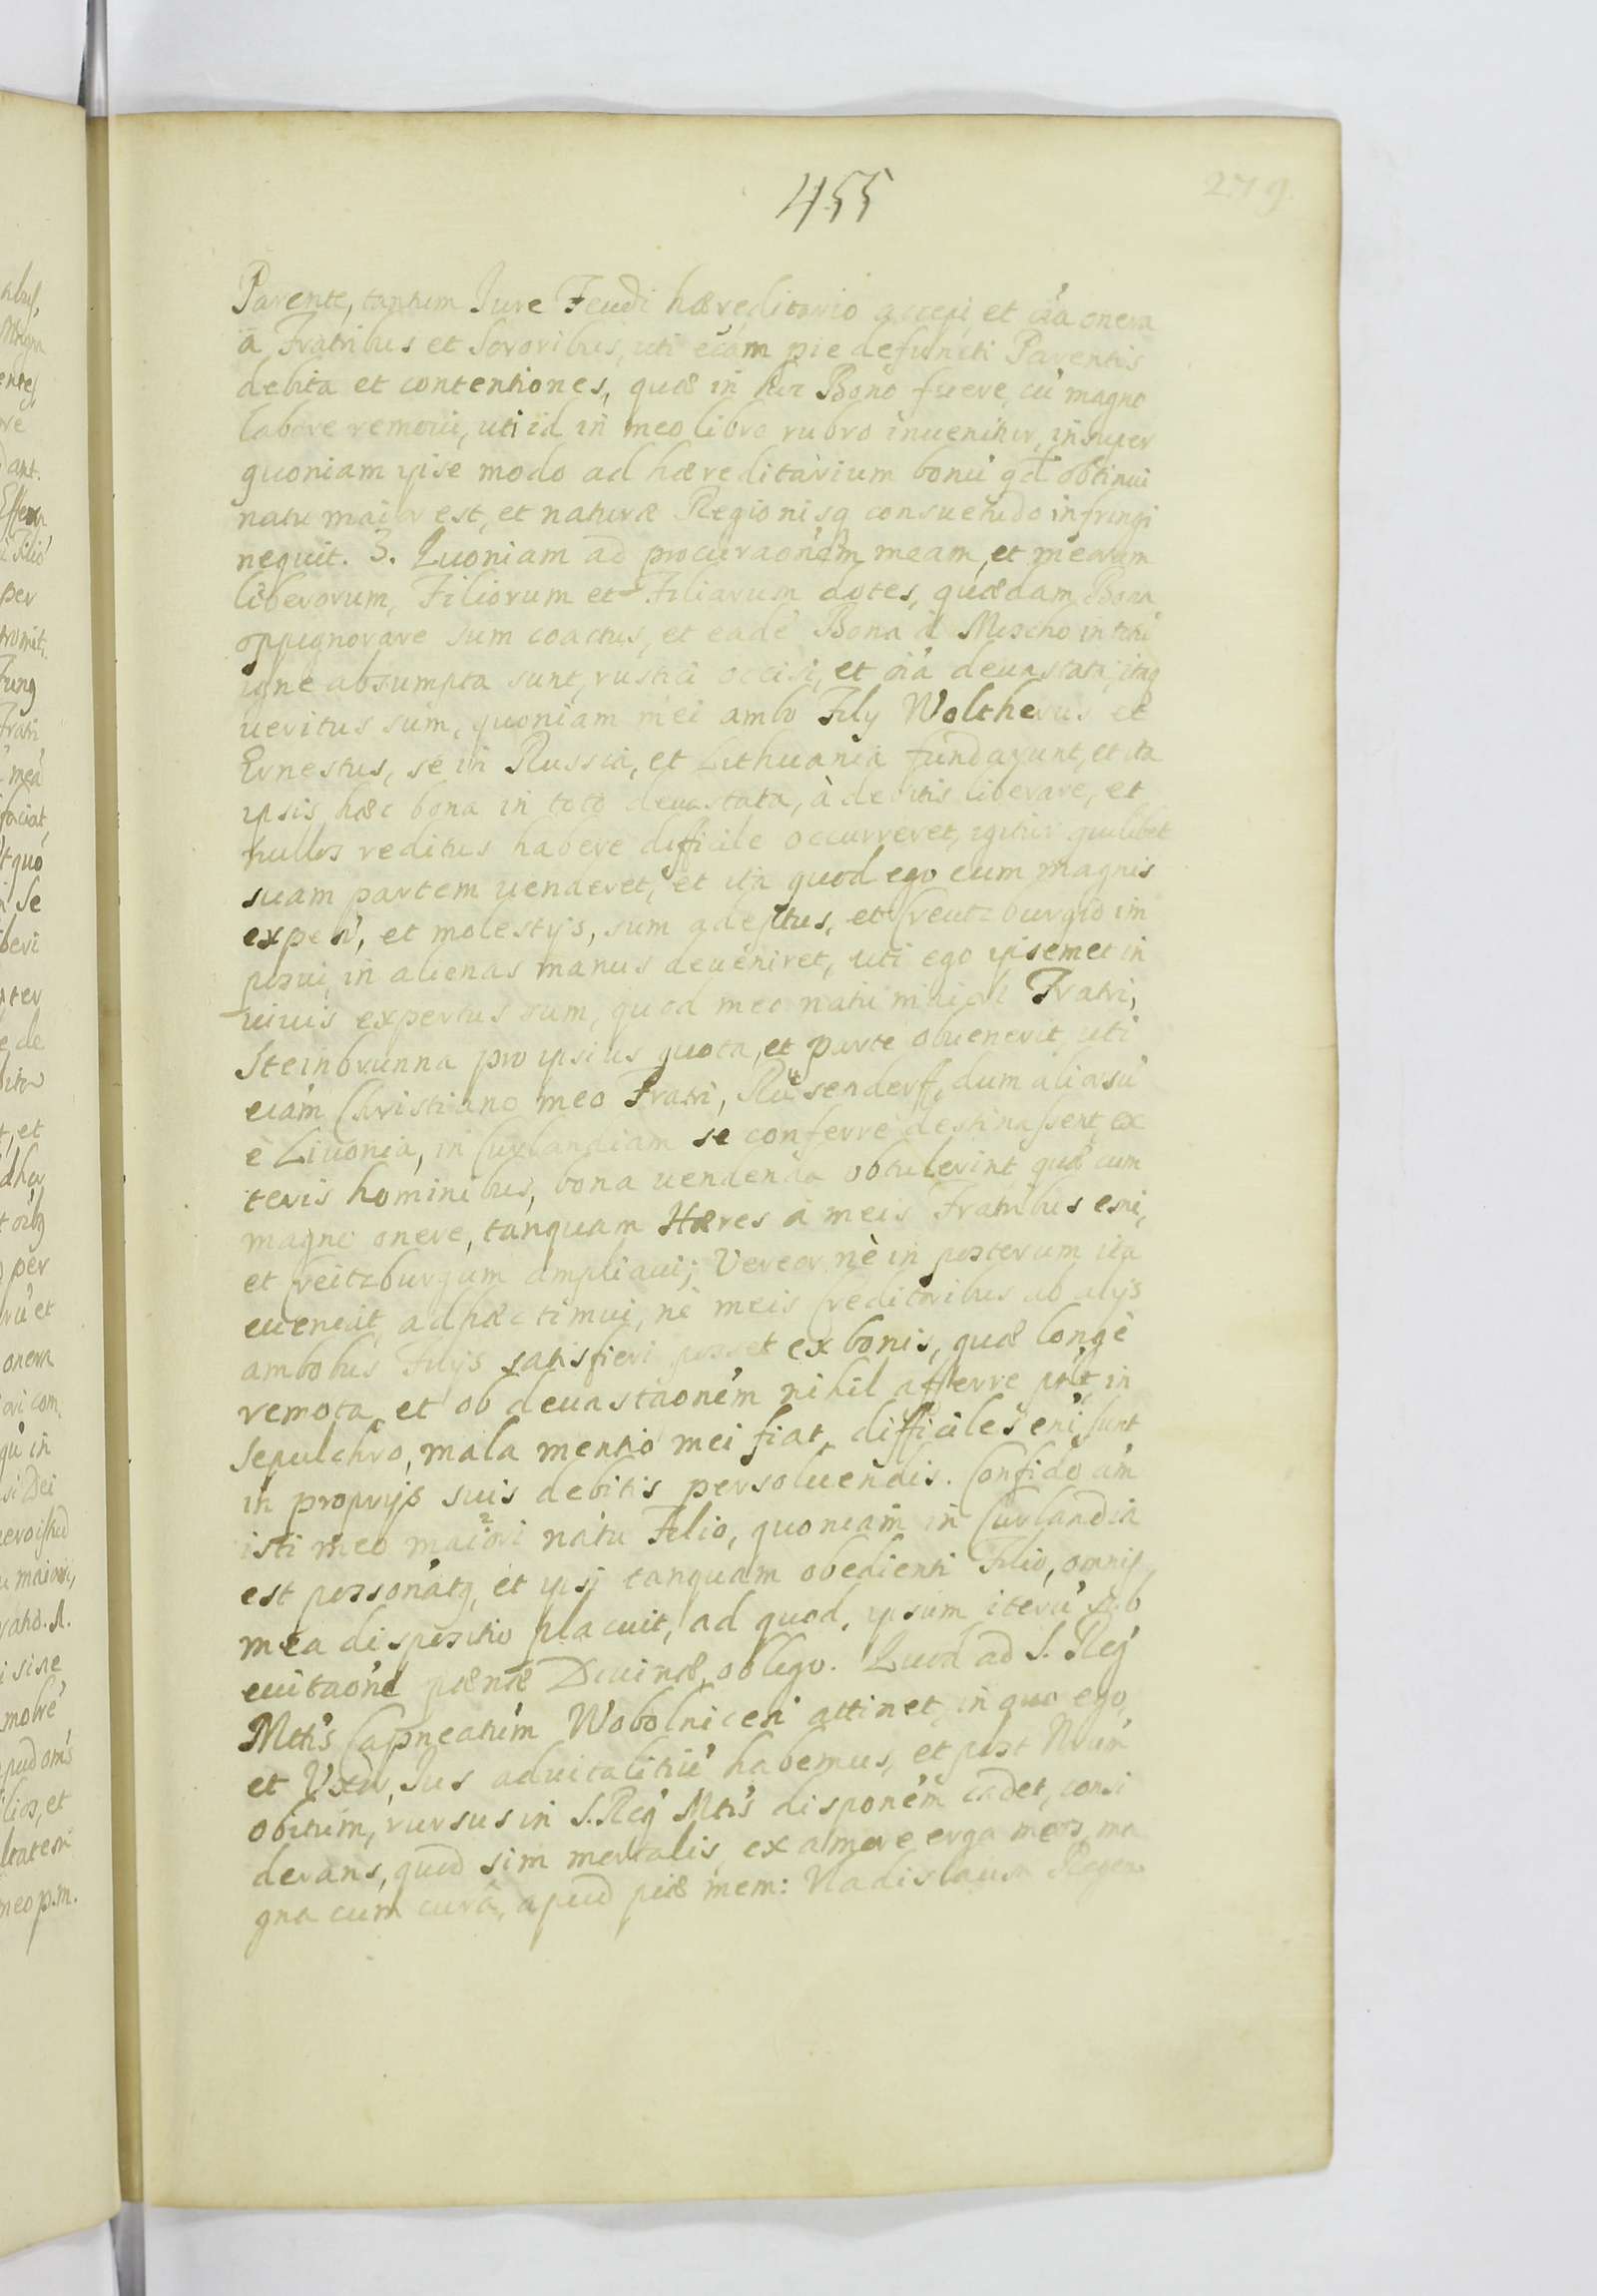 455
279.
Parente, tantum Jure Feudi hæreditario accepi, et oia onera
à Fratribus et Sororibus, uti eciam pie defuncti Parentis
debita et contentiones, quæ in hoc Bono fuere, cu magno
labore remoui, uti id in meo libro rubro inuenitur, insuper
quoniam ipse modo ad hæreditarium bonu qd obtinui
natu maior est, et naturæ Regionisq consuetudo infringi
nequit. 3. Quoniam ad procuraonem meam, et mearum
liberorum, Filiorum et Filiarum dotes, quædam Bona
oppignorare sum coactus, et eade Bona à Moscho in
igne absumpta sunt, rustici occisi, et oia deuastata, itaq
ueritus sum, quoniam mei ambo Filij Woltherus et
Ernestus, se in Russia, et Lithuania fundarunt, et ita
ipsis hæc bona in toto deuastata, à debitis liberare, et
nullos reditus habere difficile occurreret, igitur quilibet
suam partem uenderet, et ita quod ego cum magnis
expen, et molestijs, sum adeptus, et Creutzburgio im
posui, in alienas manus deueniret, uti ego ipsemet in
uiuis expertus sum, quod meo natu maiori Fratri,
Steinbrunna pro ipsius quota, et parte obuenerit, uti
eciam Christiano meo Fratri, Rusenderff, dum aliorsu
è Liuonia, in Curlandiam se conferre destinassent, ex
teris hominibus, bona uendenda obtulerint, quæ cum
magno onere, tanquam Hæres à meis Fratribus emi,
et Creitzburgum ampliaui; Vereor nè in posterum ita
eueniat, ad hæc timui, nè meis Creditoribus ab alijs
ambobus Filijs satisfieri posset ex bonis, quæ longè
remota, et ob deuastaonem nihil afferre pot, in
Sepulchro, mala mentio mei fiat, difficiles eni sunt
in proprijs suis debitis persoluendis. Confido am
isti meo maiori natu Filio, quoniam in Curlandia
est possonatq, et ipsi tanquam obedienti Filio, omnis
mea dispositio placuit, ad quod, ipsum iteru sub
euitaone pænæ Diuinæ, obligo. Quod ad S. Reg
Mttis Capneatum Wobolnicen attinet, in quo ego,
et Uxor, Jus aduitalitiu habemus, et post Nrum
obitum, rursus in S. Reg Mtis disponem cadet, consi
derans, quod sim mortalis, ex amore erga meos, ma
gna cum cura, apud piæ mem: Vladislaum Regem